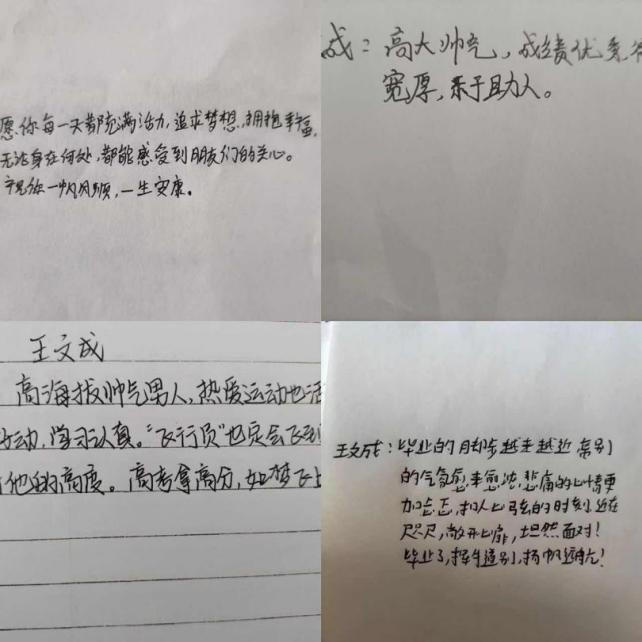 愿你每一天都充满活力,追求梦想,拥抱幸福,
无论身在何处,都能感受到朋友们的关心。
祝你一帆风顺,一生安康。
成:高大帅气,成绩优秀,
宽厚,乐于助人。
王文成
高海拔帅气男人,热爱运动也活
好动,学习认真。“飞行员”也定会飞到
他的高度。高考拿高分,如梦飞上
王文成:毕业的脚步越来越近离别
的气氛愈来愈浓,悲痛的心情更
加忐忑,扣人心弦的时刻近在
咫尺,敞开心扉,坦然面对!
毕业了,挥手道别,扬帆远航!